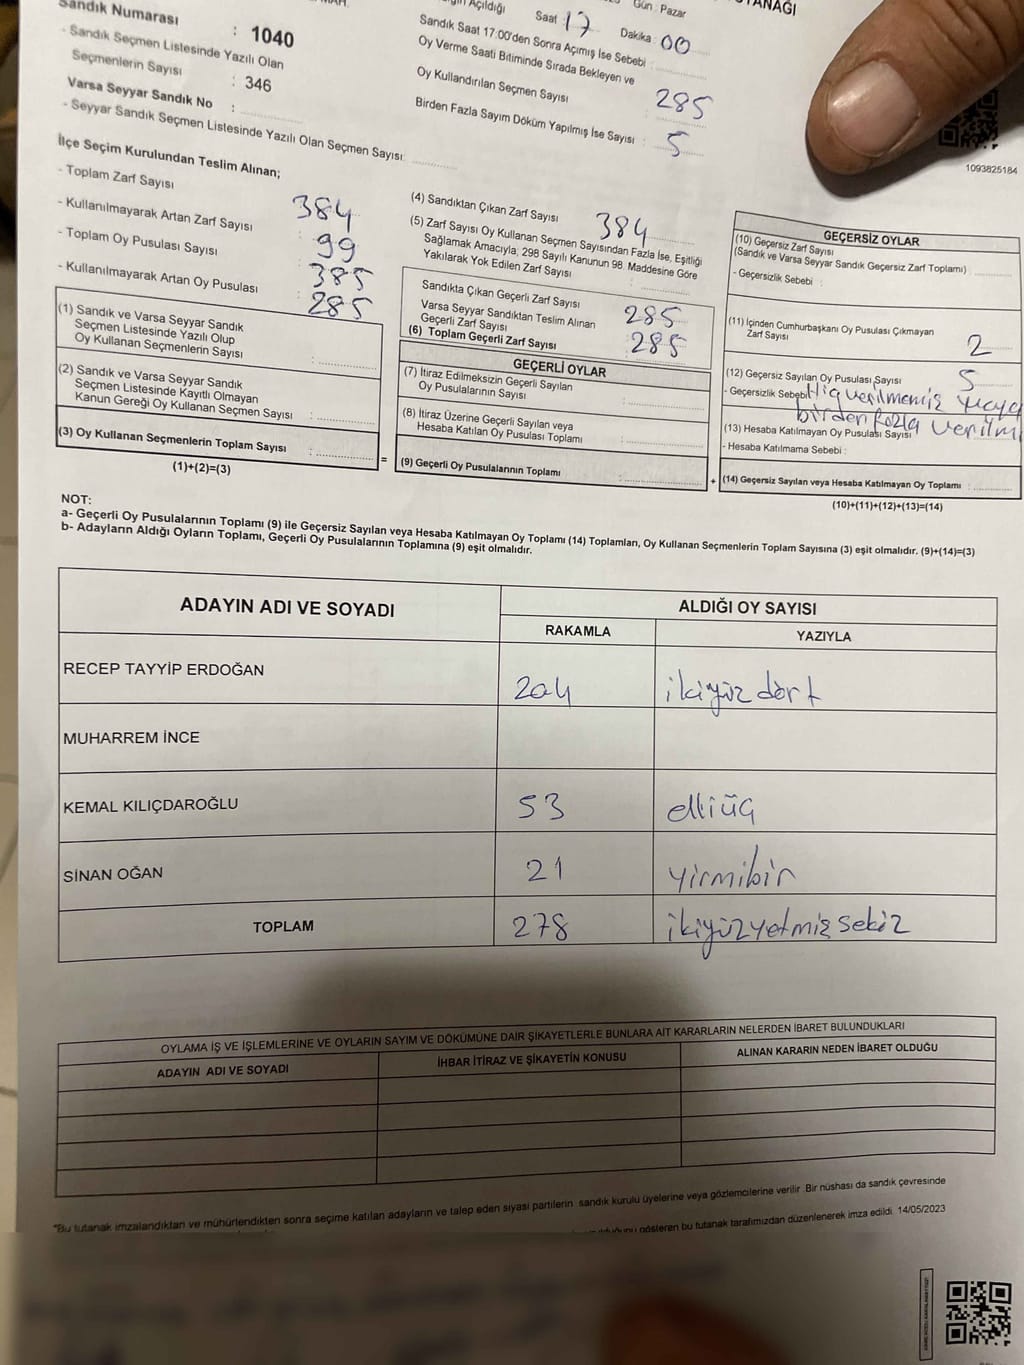 TANAĞI
Gün : Pazar
Açıldığı Saat 17 Dakika : 00
Sandık Numarası : 1040
- Sandık Seçmen Listesinde Yazılı Olan
Seçmenlerin Sayısı : 346
Varsa Seyyar Sandık No :
- Seyyar Sandık Seçmen Listesinde Yazılı Olan Seçmen Sayısı:
Sandık Saat 17:00'den Sonra Açımış İse Sebebi :
Oy Verme Saati Bitiminde Sırada Bekleyen ve
Oy Kullandırılan Seçmen Sayısı : 285
Birden Fazla Sayım Döküm Yapılmış İse Sayısı : 5
1093825184
İlçe Seçim Kurulundan Teslim Alınan;
- Toplam Zarf Sayısı : 384
- Kullanılmayarak Artan Zarf Sayısı : 99
- Toplam Oy Pusulası Sayısı : 385
- Kullanılmayarak Artan Oy Pusulası : 285
(1) Sandık ve Varsa Seyyar Sandık
Seçmen Listesinde Yazılı Olup
Oy Kullanan Seçmenlerin Sayısı :
(2) Sandık ve Varsa Seyyar Sandık
Seçmen Listesinde Kayıtlı Olmayan
Kanun Gereği Oy Kullanan Seçmen Sayısı :
(3) Oy Kullanan Seçmenlerin Toplam Sayısı :
(1)+(2)=(3)
=
(4) Sandıktan Çıkan Zarf Sayısı : 384
(5) Zarf Sayısı Oy Kullanan Seçmen Sayısından Fazla İse, Eşitliği
Sağlamak Amacıyla, 298 Sayılı Kanunun 98. Maddesine Göre
Yakılarak Yok Edilen Zarf Sayısı :
Sandıkta Çıkan Geçerli Zarf Sayısı : 285
Varsa Seyyar Sandıktan Teslim Alınan
Geçerli Zarf Sayısı : 285
(6) Toplam Geçerli Zarf Sayısı
GEÇERLİ OYLAR
(7) İtiraz Edilmeksizin Geçerli Sayılan
Oy Pusulalarının Sayısı :
(8) İtiraz Üzerine Geçerli Sayılan veya
Hesaba Katılan Oy Pusulası Toplamı :
(9) Geçerli Oy Pusulalarının Toplamı :
+
GEÇERSİZ OYLAR
(10) Geçersiz Zarf Sayısı
(Sandık ve Varsa Seyyar Sandık Geçersiz Zarf Toplamı) :
- Geçersizlik Sebebi :
(11) İçinden Cumhurbaşkanı Oy Pusulası Çıkmayan
Zarf Sayısı : 2
(12) Geçersiz Sayılan Oy Pusulası Sayısı : 5
- Geçersizlik Sebebi: Hiç verilmemiş veya
birden fazla verilm
(13) Hesaba Katılmayan Oy Pusulası Sayısı
- Hesaba Katılmama Sebebi :
(14) Geçersiz Sayılan veya Hesaba Katılmayan Oy Toplamı :
(10)+(11)+(12)+(13)=(14)
NOT:
a- Geçerli Oy Pusulalarının Toplamı (9) ile Geçersiz Sayılan veya Hesaba Katılmayan Oy Toplamı (14) Toplamları, Oy Kullanan Seçmenlerin Toplam Sayısına (3) eşit olmalıdır. (9)+(14)=(3)
b- Adayların Aldığı Oyların Toplamı, Geçerli Oy Pusulalarının Toplamına (9) eşit olmalıdır.
ADAYIN ADI VE SOYADI
ALDIĞI OY SAYISI
RAKAMLA YAZIYLA
RECEP TAYYİP ERDOĞAN 204 ikiyüz dört
MUHARREM İNCE
KEMAL KILIÇDAROĞLU 53 elliüç
SİNAN OĞAN 21 yirmibir
TOPLAM 278 ikiyüzyetmişsekiz
OYLAMA İŞ VE İŞLEMLERİNE VE OYLARIN SAYIM VE DÖKÜMÜNE DAİR ŞİKAYETLERLE BUNLARA AİT KARARLARIN NELERDEN İBARET BULUNDUKLARI
ADAYIN ADI VE SOYADI İHBAR İTİRAZ VE ŞİKAYETİN KONUSU ALINAN KARARIN NEDEN İBARET OLDUĞU
"Bu tutanak imzalandıktan ve mühürlendikten sonra seçime katılan adayların ve talep eden siyasi partilerin sandık kurulu üyelerine veya gözlemcilerine verilir. Bir nüshası da sandık çevresinde
gösteren bu tutanak tarafımızdan düzenlenerek imza edildi. 14/05/2023